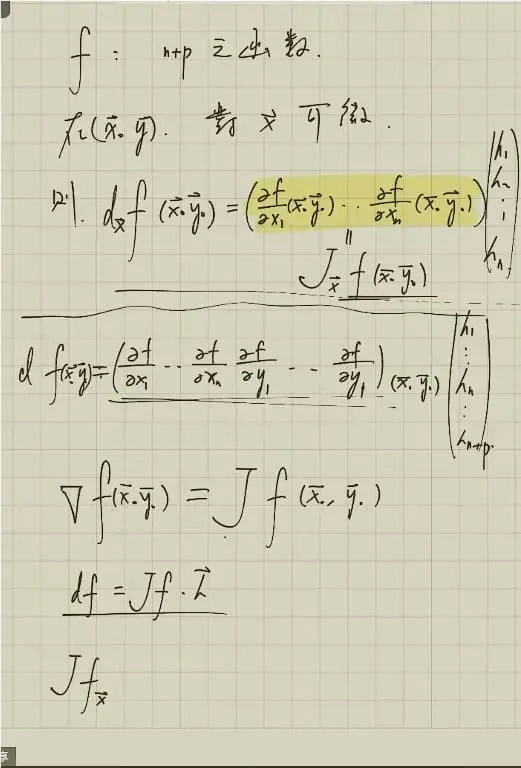 f : n+p 之函数.
在(x⃗₀, y⃗₀). 對 x⃗ 可微.
则. d_x⃗ f (x⃗₀, y⃗₀) = (∂f/∂x₁ (x⃗₀, y⃗₀) ⋯ ∂f/∂xₙ (x⃗₀, y⃗₀)) (h₁ h₂ ⋮ hₙ)
‖
J_x⃗ f (x⃗₀, y⃗₀)
d f(x⃗₀, y⃗₀) = (∂f/∂x₁ ⋯ ∂f/∂xₙ ∂f/∂y₁ ⋯ ∂f/∂y₁)(x⃗₀, y⃗₀) (h₁ ⋮ hₙ ⋮ hₙ₊ₚ)
∇f(x⃗₀, y⃗₀) = J f (x⃗₀, y⃗₀)
df = Jf · h⃗
J f_x⃗